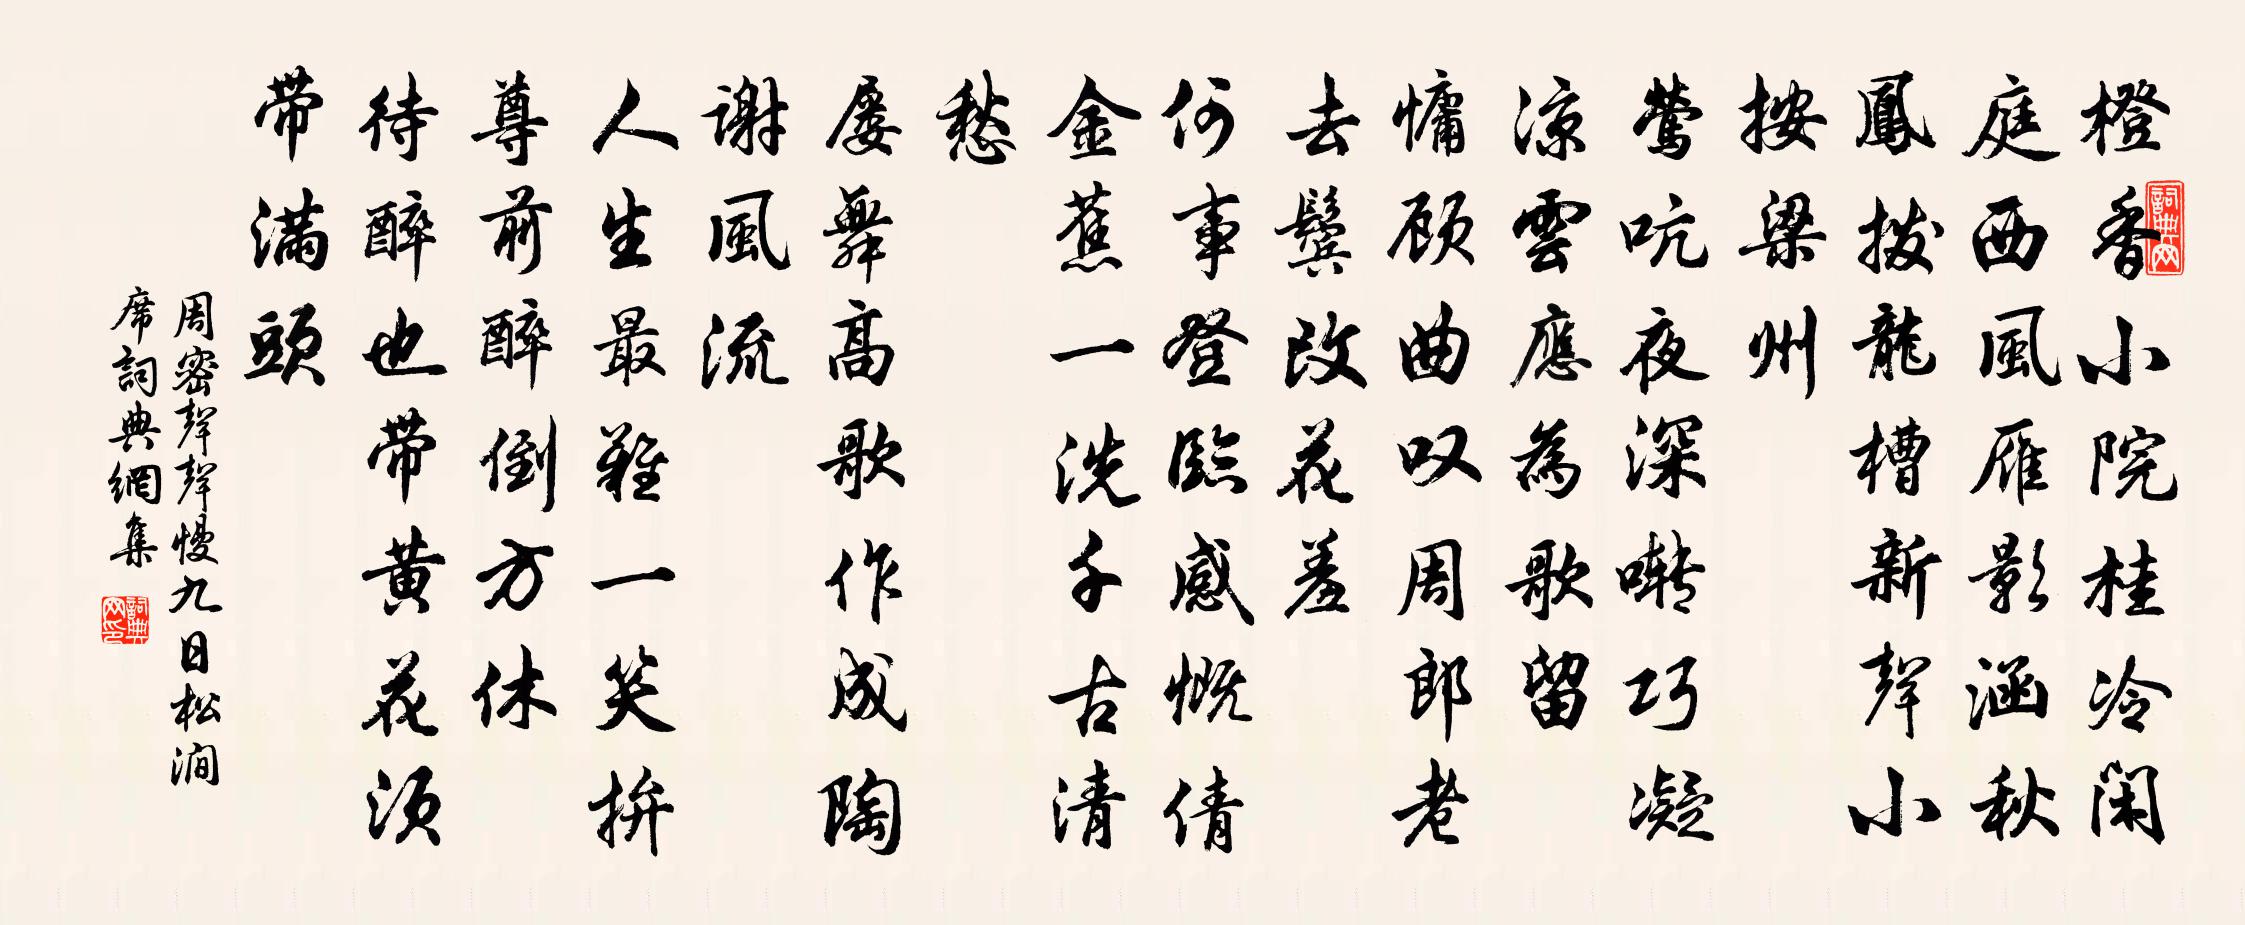 橙香小院桂冷閑
庭西風雁影涵秋
鳳撥龍槽新聲小
按梁州
鶯吭夜深囀巧凝
涼雲應為歌留
慵顾曲叹周郎老
去鬢改花羞
何事登臨感慨倩
金蕉一洗千古清
愁
屡舞高歌作成陶
谢風流
人生最難一笑拚
尊前醉倒方休
待醉也带黄花须
带滿頭
周密聲聲慢九日松澗
席詞典網集
詞典网
詞典网印